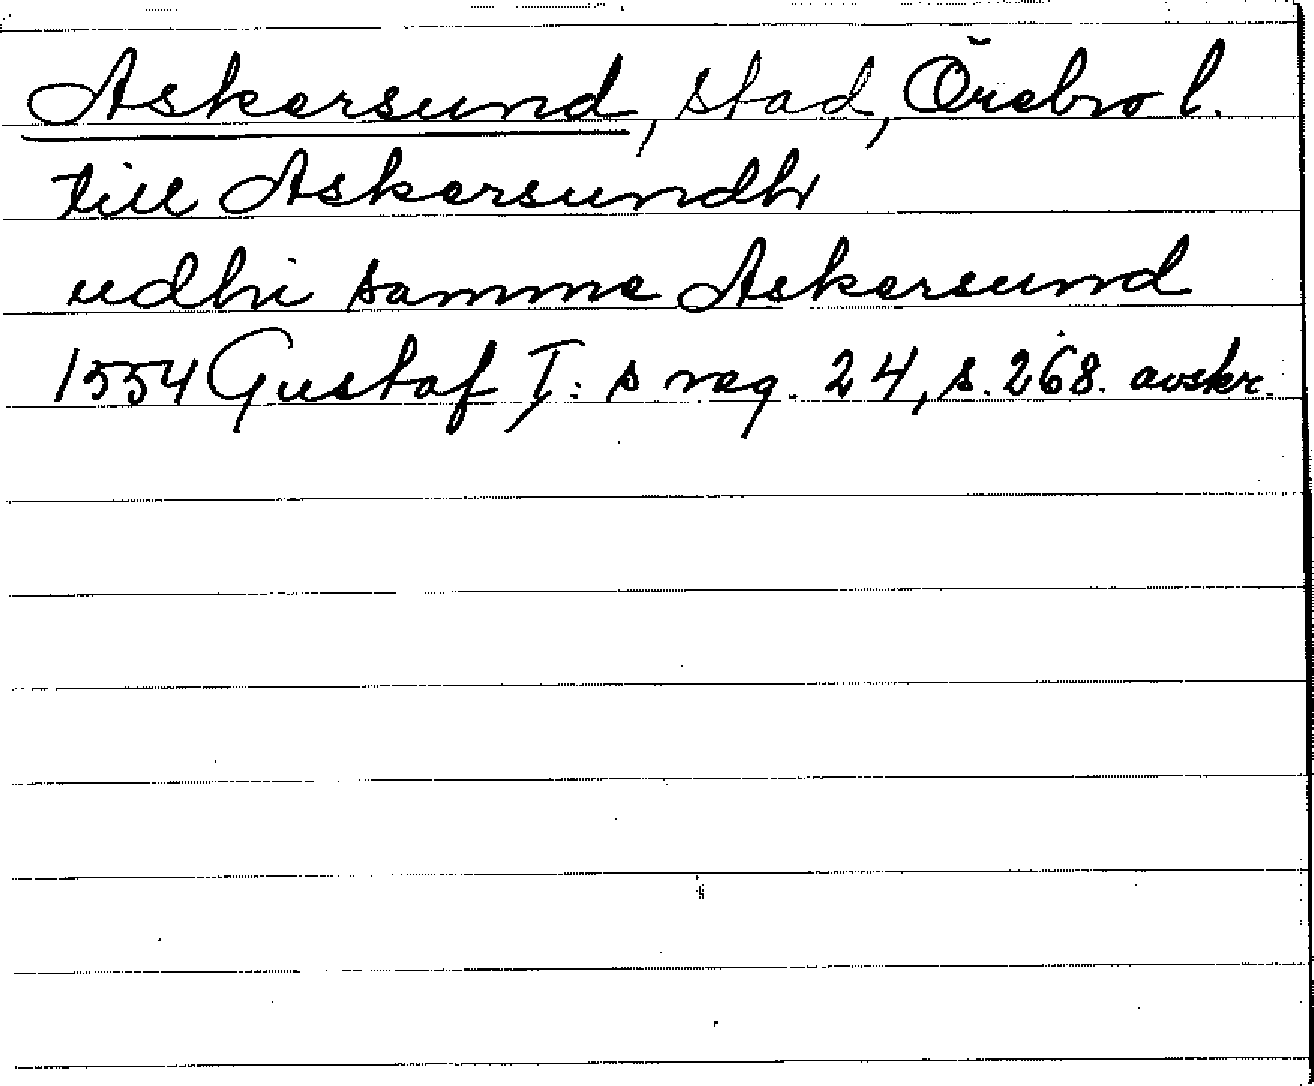 Askersund, stad, Örebro l.
till Askersundh
udhi samme Askersund
1554 Gustaf I:s reg. 24, s. 268. avskr.